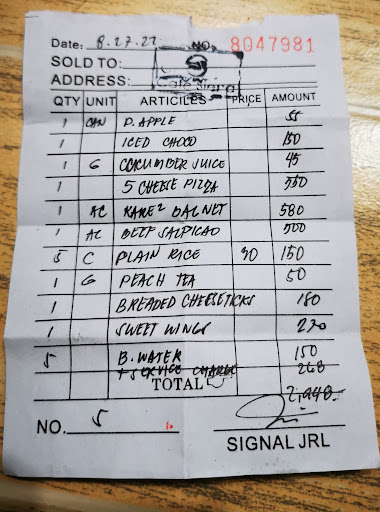 Date: 8.27.22 NO. 8047981
SOLD TO:
ADDRESS:
QTY UNIT ARTICILES PRICE AMOUNT
1 CAN P. APPLE 55
1 ICED CHOCO 150
1 G CUCUMBER JUICE 45
1 5 CHEESE PIZZA 550
1 AC KARE² BAGNET 580
1 AC BEEF SALPICAO 500
5 C PLAIN RICE 30 150
1 G PEACH TEA 50
1 BREADED CHEESETICKS 180
1 SWEET WINGS 270
5 B. WATER 150
+ SERVICE CHARGE 268
TOTAL 2,948-
NO. 5
SIGNAL JRL